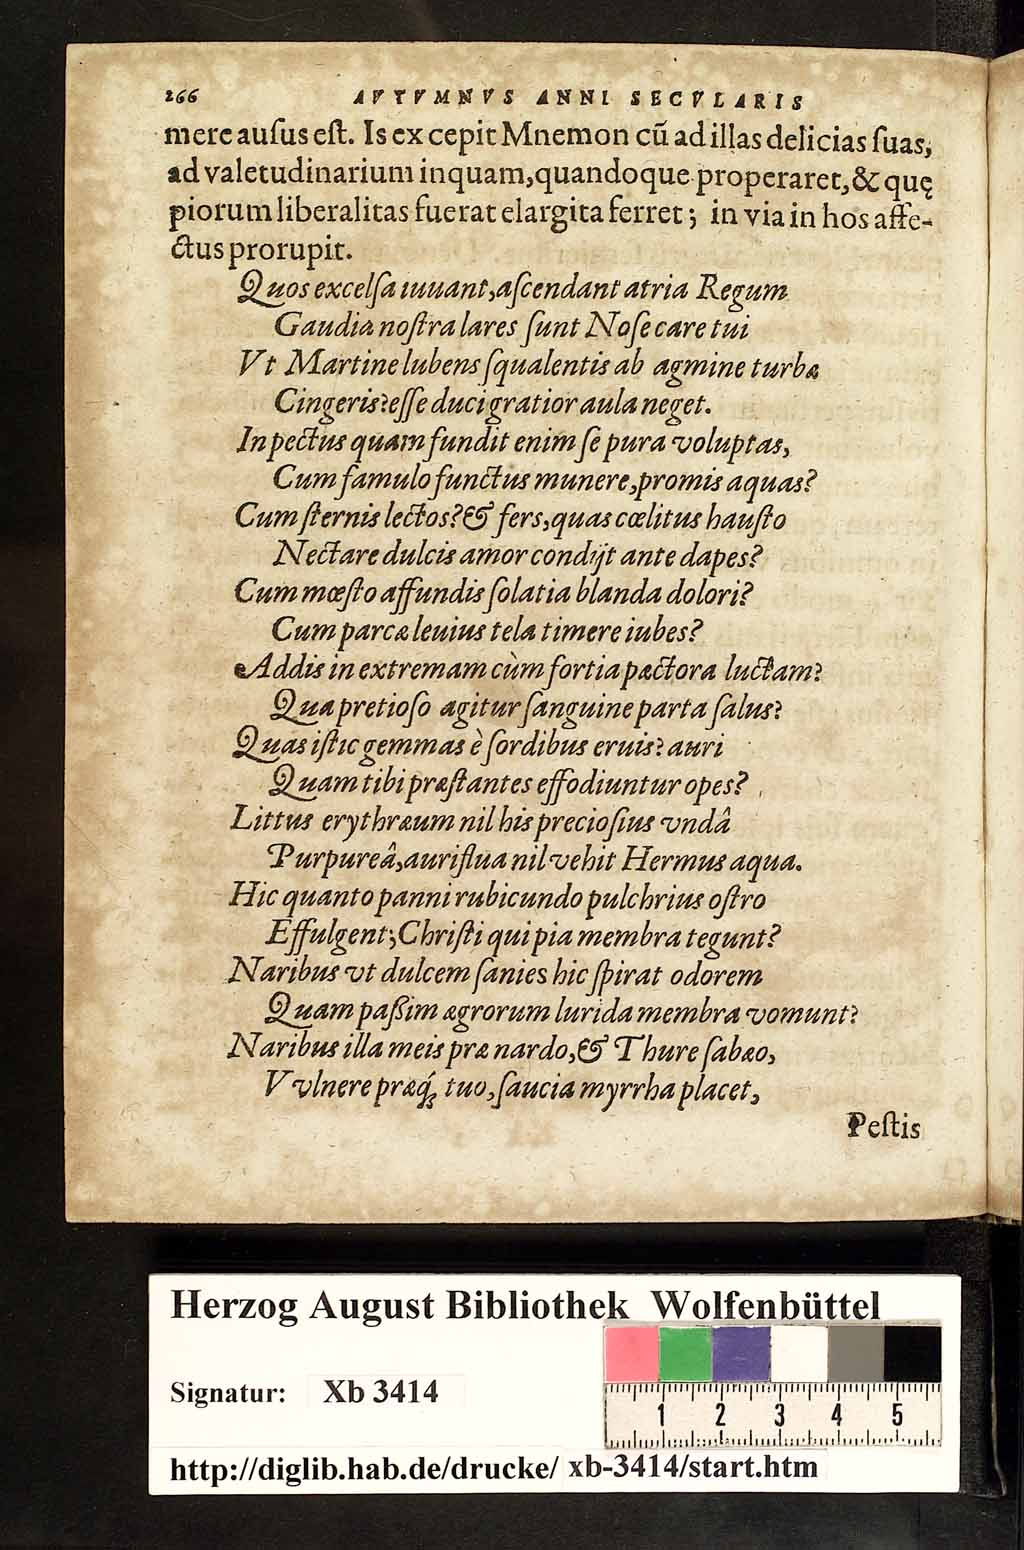 266 AVTVMNVS ANNI SECVLARIS
mere auſus eſt. Is ex cepit Mnemon cũ ad illas delicias ſuas,
ad valetudinarium inquam, quandoque properaret, & quę
piorum liberalitas fuerat elargita ferret; in via in hos affe-
ctus prorupit.
Quos excelſa iuuant, aſcendant atria Regum
Gaudia noſtra lares ſunt Noſe care tui
Vt Martine lubens ſqualentis ab agmine turbæ
Cingeris? eſſe duci gratior aula neget.
In pectus quam fundit enim ſe pura voluptas,
Cum famulo functus munere, promis aquas?
Cum ſternis lectos? & fers, quas cœlitus hauſto
Nectare dulcis amor condijt ante dapes?
Cum mœſto affundis ſolatia blanda dolori?
Cum parcæ leuius tela timere iubes?
Addis in extremam cùm fortia pæctora luctam?
Qua pretioſo agitur ſanguine parta ſalus?
Quas iſtic gemmas è ſordibus eruis? auri
Quam tibi præſtantes effodiuntur opes?
Littus erythræum nil his precioſius vndâ
Purpureâ, auriflua nil vehit Hermus aqua.
Hic quanto panni rubicundo pulchrius oſtro
Effulgent; Chriſti qui pia membra tegunt?
Naribus vt dulcem ſanies hic ſpirat odorem
Quam paßim ægrorum lurida membra vomunt?
Naribus illa meis præ nardo, & Thure ſabæo,
Vvlnere præq́; tuo, ſaucia myrrha placet,
Peſtis
Herzog August Bibliothek Wolfenbüttel
Signatur: Xb 3414
1 2 3 4 5
http://diglib.hab.de/drucke/ xb-3414/start.htm